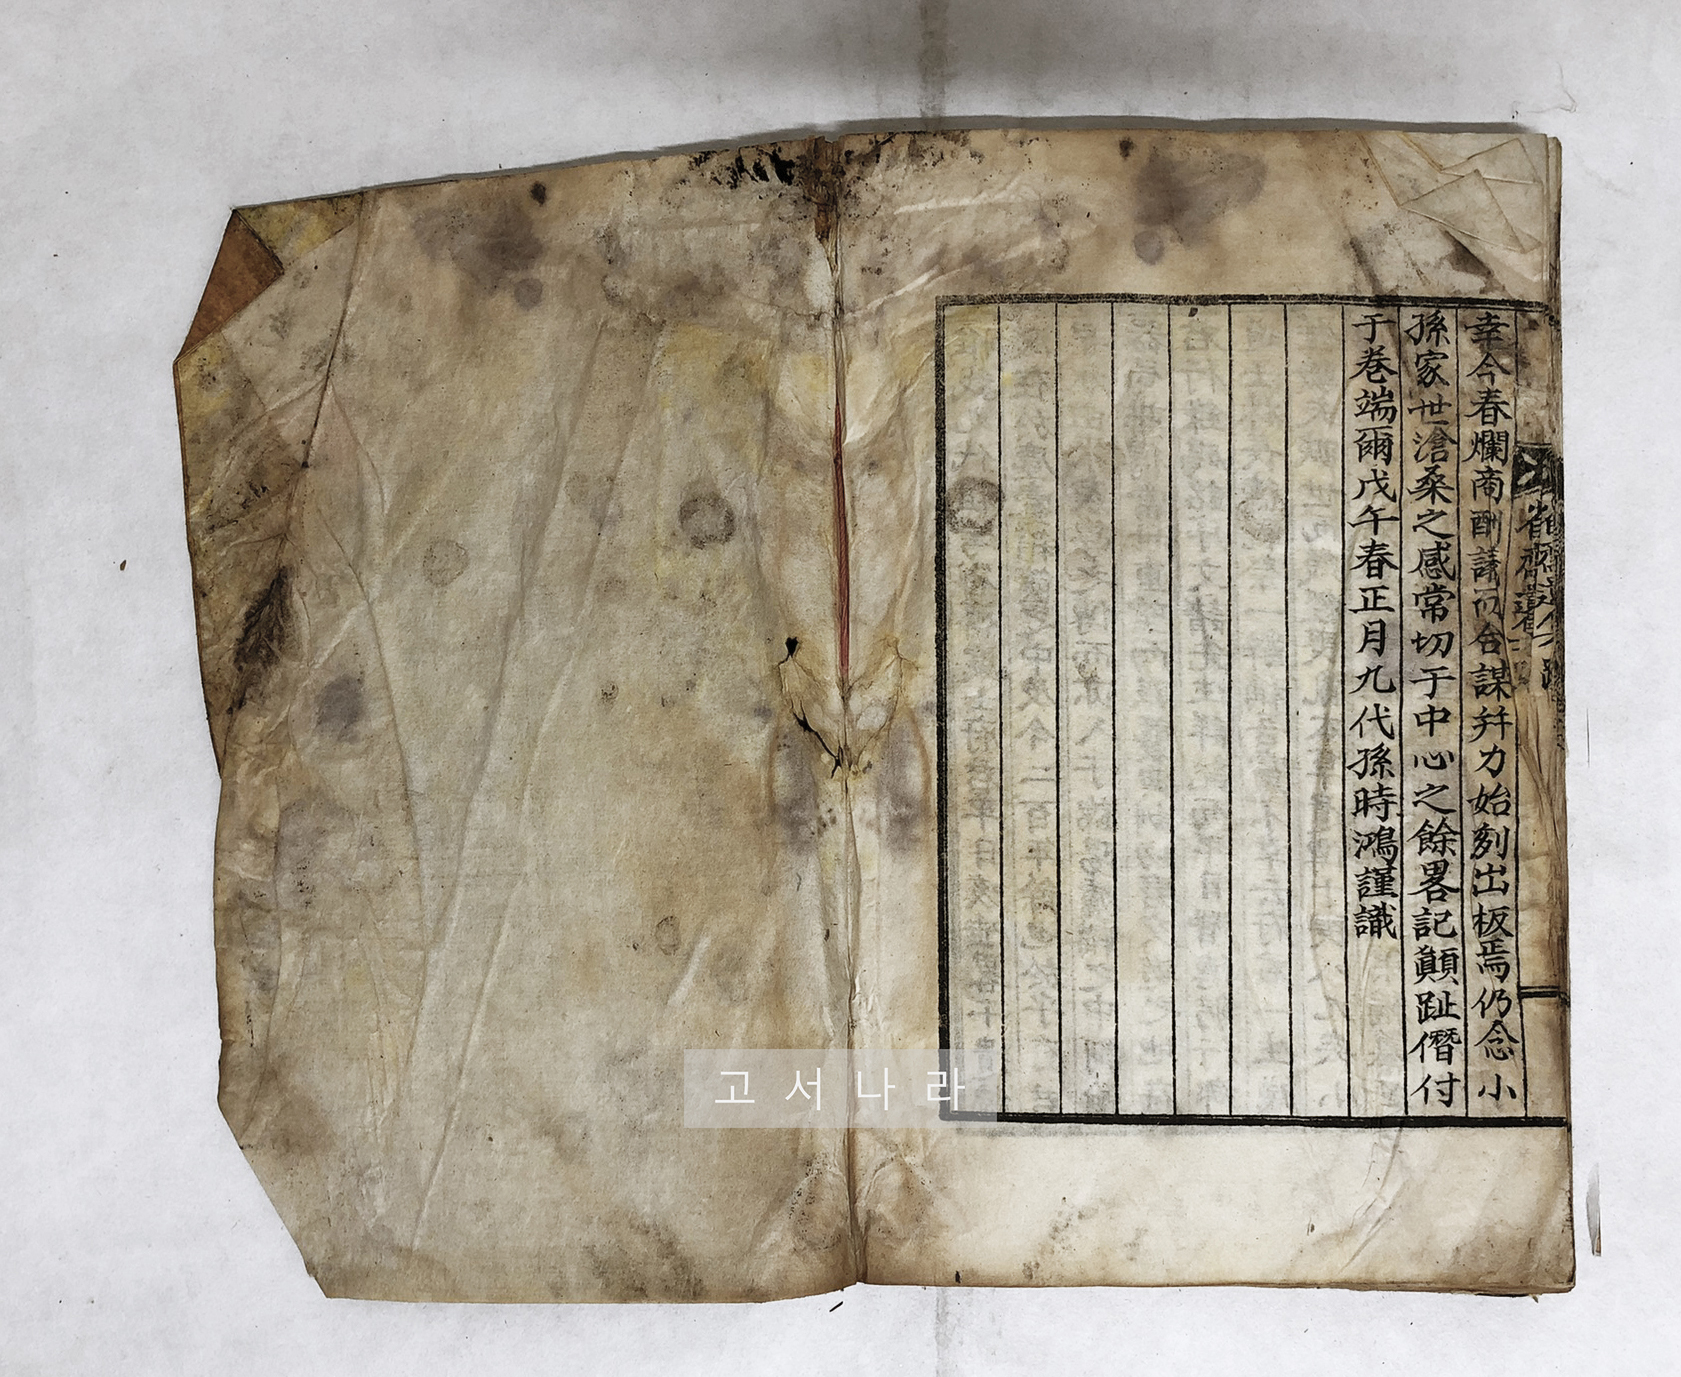 幸今春爛商酬議而合謀幷力始刻出板焉仍念小
孫家世滄桑之感常切于中心之餘畧記顚趾僭付
于卷端爾戊午春正月九代孫時鴻謹識
고서나라